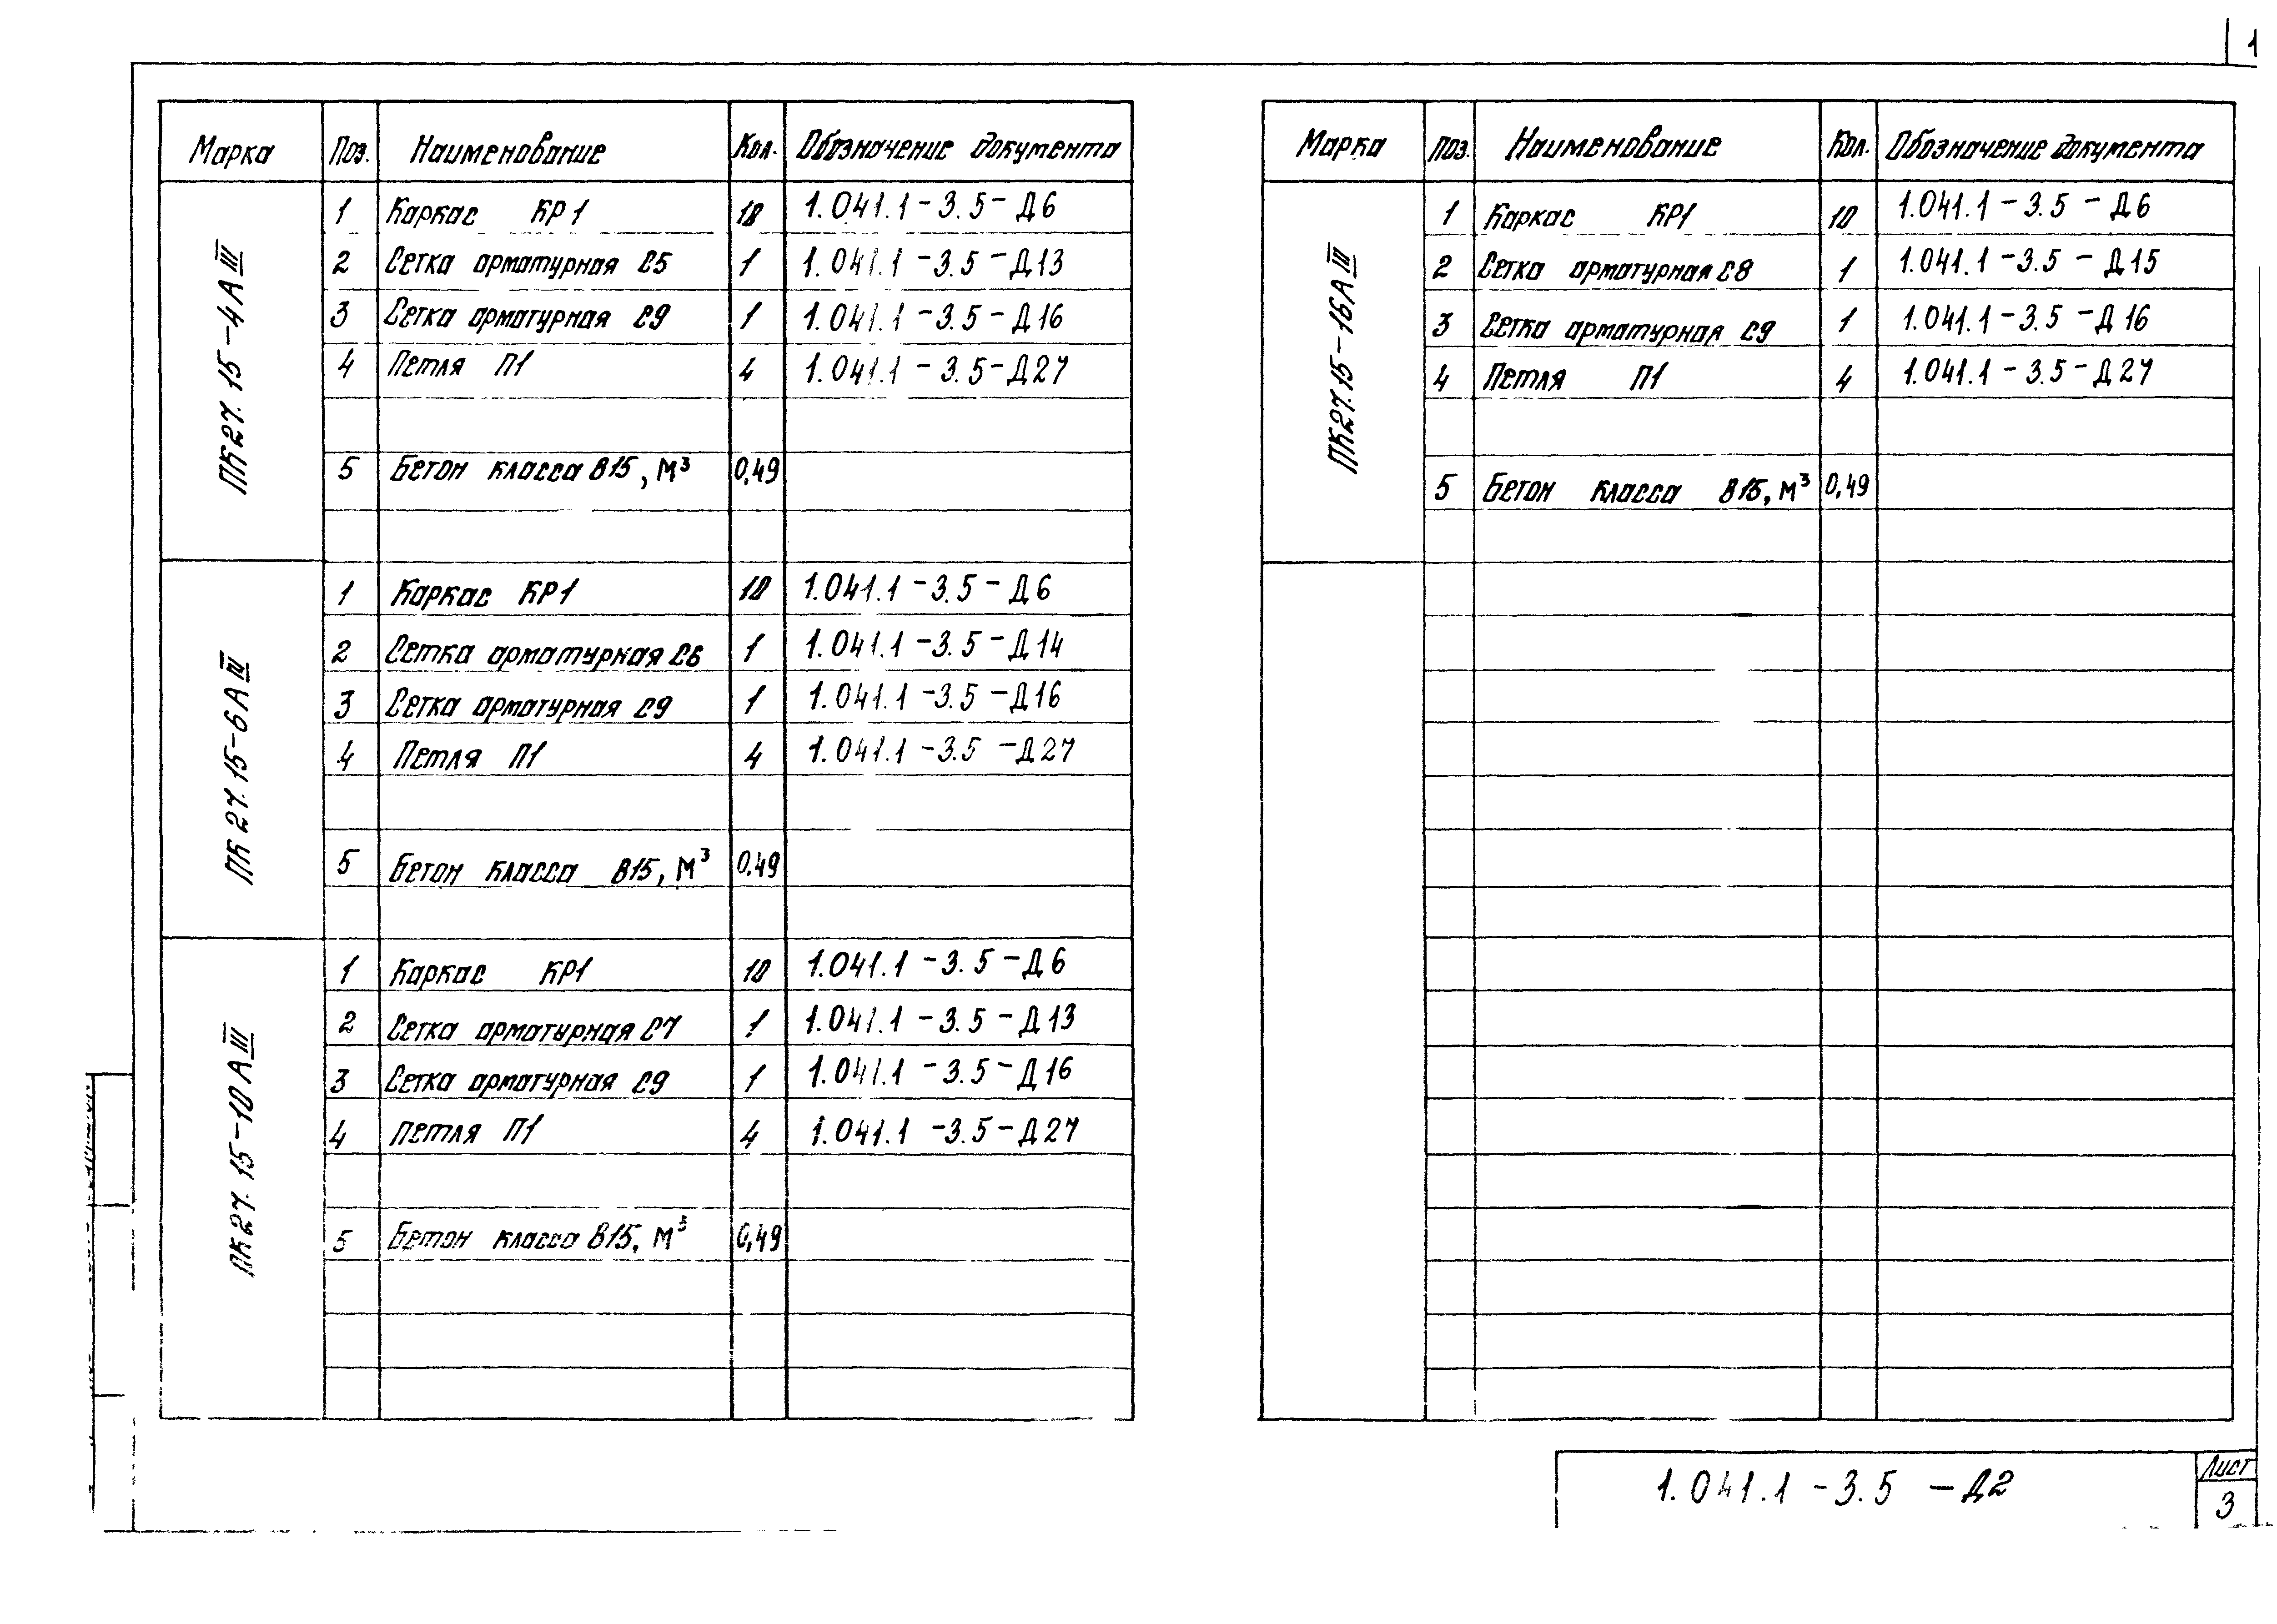 1
Марка Поз. Наименование Кол. Обозначение документа
ПК27.15-4АIII
1 Каркас КР1 10 1.041.1-3.5-Д6
2 Сетка арматурная С5 1 1.041.1-3.5-Д13
3 Сетка арматурная С9 1 1.041.1-3.5-Д16
4 Петля П1 4 1.041.1-3.5-Д27
5 Бетон класса В15, м³ 0,49
ПК27.15-6АIII
1 Каркас КР1 10 1.041.1-3.5-Д6
2 Сетка арматурная С6 1 1.041.1-3.5-Д14
3 Сетка арматурная С9 1 1.041.1-3.5-Д16
4 Петля П1 4 1.041.1-3.5-Д27
5 Бетон класса В15, м³ 0.49
ПК27.15-10АIII
1 Каркас КР1 10 1.041.1-3.5-Д6
2 Сетка арматурная С7 1 1.041.1-3.5-Д13
3 Сетка арматурная С9 1 1.041.1-3.5-Д16
4 Петля П1 4 1.041.1-3.5-Д27
5 Бетон класса В15, м³ 0,49
Марка Поз. Наименование Кол. Обозначение документа
ПК27.15-16АIII
1 Каркас КР1 10 1.041.1-3.5-Д6
2 Сетка арматурная С8 1 1.041.1-3.5-Д15
3 Сетка арматурная С9 1 1.041.1-3.5-Д16
4 Петля П1 4 1.041.1-3.5-Д27
5 Бетон класса В15, м³ 0,49
1.041.1-3.5-Д2
Лист
3